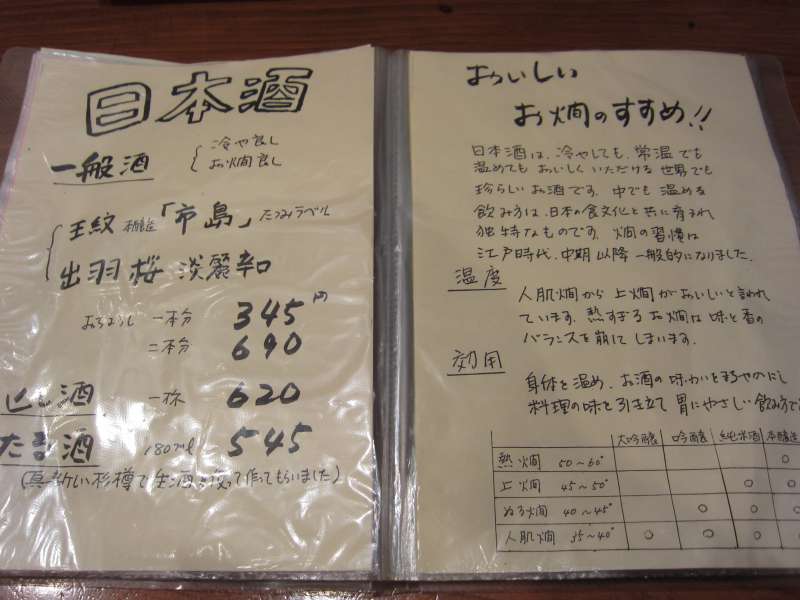 日本酒
一般酒
冷や良し
お燗良し
王紋 本醸造 「市島」 たつみラベル
出羽桜 淡麗辛口
おちょうし 一本分 345円
二本分 690
酒 一杯 620
たる酒 180ml 545
(真新しい杉樽で生酒を使って作ってもらいました)
おいしい
お燗のすすめ!!
日本酒は、冷やしても、常温でも
温めてもおいしくいただける世界でも
珍らしいお酒です。中でも温める
飲み方は、日本の食文化と共に育まれ
独特なものです。燗の習慣は
江戸時代、中期以降一般的になりました。
温度
人肌燗から上燗がおいしいと言われ
ています。熱すぎるお燗は味と香の
バランスを崩してしまいます。
効用
身体を温め、お酒の味わいをまろやかにし
料理の味を引立て胃にやさしい飲み方で
大吟醸 吟醸 純米酒 本醸造
熱燗 50〜60° ○
上燗 45〜50° ○ ○
ぬる燗 40〜45° ○ ○ ○
人肌燗 35〜40° ○ ○ ○ ○